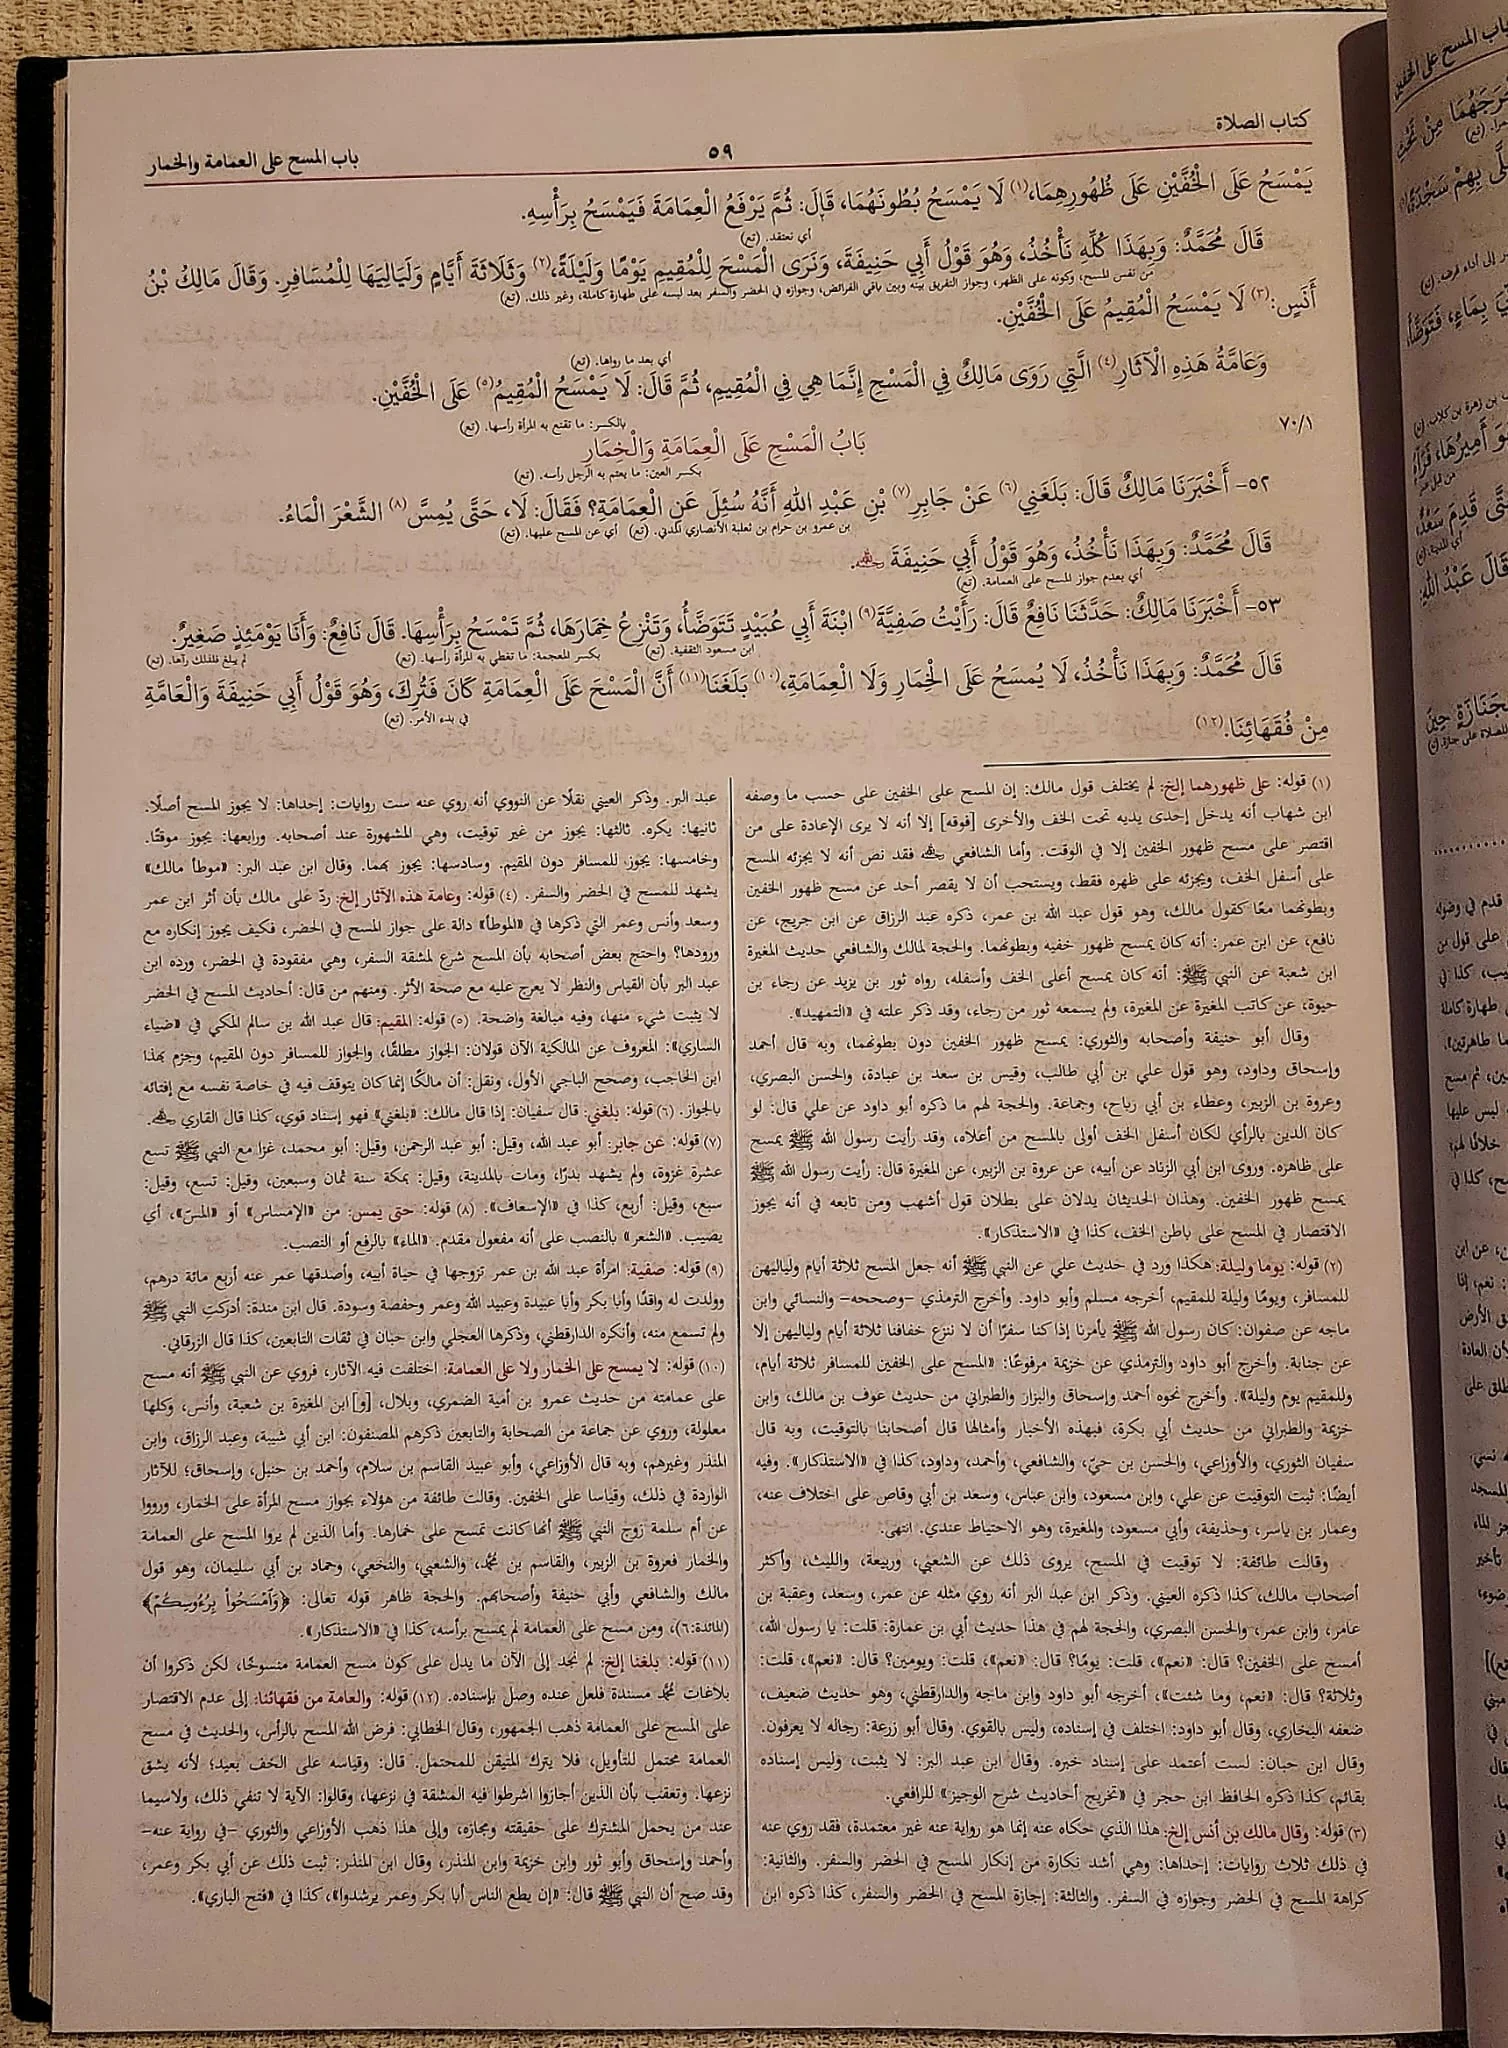 كتاب الصلاة
٥٩
باب المسح على العمامة والخمار
يَمْسَحُ عَلَى الْخُفَّيْنِ عَلَى ظُهُورِهِمَا،(١) لَا يَمْسَحُ بُطُونَهُمَا، قَالَ: ثُمَّ يَرْفَعُ الْعِمَامَةَ فَيَمْسَحُ بِرَأْسِهِ.
أي نعتقد. (تع)
قَالَ مُحَمَّدٌ: وَبِهَذَا كُلِّهِ نَأْخُذُ، وَهُوَ قَوْلُ أَبِي حَنِيفَةَ، وَنَرَى الْمَسْحَ لِلْمُقِيمِ يَوْمًا وَلَيْلَةً،(٢) وَثَلَاثَةَ أَيَّامٍ وَلَيَالِيَهَا لِلْمُسَافِرِ. وَقَالَ مَالِكُ بْنُ
من نفس المسح، وكونه على الظهر، وجواز التفريق بينه وبين باقي الفرائض، وجوازه في الحضر والسفر بعد لبسه على طهارة كاملة، وغير ذلك. (تع)
أَنَسٍ:(٣) لَا يَمْسَحُ الْمُقِيمُ عَلَى الْخُفَّيْنِ.
أي بعد ما رواها. (تع)
وَعَامَّةُ هَذِهِ الْآثَارِ(٤) الَّتِي رَوَى مَالِكٌ فِي الْمَسْحِ إِنَّمَا هِيَ فِي الْمُقِيمِ، ثُمَّ قَالَ: لَا يَمْسَحُ الْمُقِيمُ(٥) عَلَى الْخُفَّيْنِ.
بالكسر: ما تقنع به المرأة رأسها. (تع)
٧٠/١
بَابُ الْمَسْحِ عَلَى الْعِمَامَةِ وَالْخِمَارِ
بكسر العين: ما يعتم به الرجل رأسه. (تع)
٥٢- أَخْبَرَنَا مَالِكٌ قَالَ: بَلَغَنِي(٦) عَنْ جَابِرِ(٧) بْنِ عَبْدِ اللهِ أَنَّهُ سُئِلَ عَنِ الْعِمَامَةِ؟ فَقَالَ: لَا، حَتَّى يُمِسَّ(٨) الشَّعْرَ الْمَاءُ.
بن عمرو بن حرام بن ثعلبة الأنصاري المدني. (تع) أي عن المسح عليها. (تع)
قَالَ مُحَمَّدٌ: وَبِهَذَا نَأْخُذُ، وَهُوَ قَوْلُ أَبِي حَنِيفَةَ ؒ.
أي بعدم جواز المسح على العمامة. (تع)
٥٣- أَخْبَرَنَا مَالِكٌ: حَدَّثَنَا نَافِعٌ قَالَ: رَأَيْتُ صَفِيَّةَ(٩) ابْنَةَ أَبِي عُبَيْدٍ تَتَوَضَّأُ، وَتَنْزِعُ خِمَارَهَا، ثُمَّ تَمْسَحُ بِرَأْسِهَا. قَالَ نَافِعٌ: وَأَنَا يَوْمَئِذٍ صَغِيرٌ.
ابن مسعود الثقفية. (تع) بكسر المعجمة: ما تغطي به المرأة رأسها. (تع) لم يبلغ فلذلك رآها. (تع)
قَالَ مُحَمَّدٌ: وَبِهَذَا نَأْخُذُ، لَا يُمسَحُ عَلَى الْخِمَارِ وَلَا الْعِمَامَةِ،(١٠) بَلَغَنَا(١١) أَنَّ الْمَسْحَ عَلَى الْعِمَامَةِ كَانَ فَتُرِكَ، وَهُوَ قَوْلُ أَبِي حَنِيفَةَ وَالْعَامَّةِ
في بدء الأمر. (تع)
مِنْ فُقَهَائِنَا.(١٢)
(١) قوله: على ظهورهما إلخ: لم يختلف قول مالك: إن المسح على الخفين على حسب ما وصفه
ابن شهاب أنه يدخل إحدى يديه تحت الخف والأخرى [فوقه] إلا أنه لا يرى الإعادة على من
اقتصر على مسح ظهور الخفين إلا في الوقت. وأما الشافعي ؒ فقد نص أنه لا يجزئه المسح
على أسفل الخف، ويجزئه على ظهره فقط، ويستحب أن لا يقصر أحد عن مسح ظهور الخفين
وبطونهما معًا كقول مالك، وهو قول عبد الله بن عمر، ذكره عبد الرزاق عن ابن جريج، عن
نافع، عن ابن عمر: أنه كان يمسح ظهور خفيه وبطونهما. والحجة لمالك والشافعي حديث المغيرة
ابن شعبة عن النبي ﷺ: أنه كان يمسح أعلى الخف وأسفله، رواه ثور بن يزيد عن رجاء بن
حيوة، عن كاتب المغيرة عن المغيرة، ولم يسمعه ثور من رجاء، وقد ذكر علته في «التمهيد».
وقال أبو حنيفة وأصحابه والثوري: يمسح ظهور الخفين دون بطونهما، وبه قال أحمد
وإسحاق وداود، وهو قول علي بن أبي طالب، وقيس بن سعد بن عبادة، والحسن البصري،
وعروة بن الزبير، وعطاء بن أبي رباح، وجماعة. والحجة لهم ما ذكره أبو داود عن علي قال: لو
كان الدين بالرأي لكان أسفل الخف أولى بالمسح من أعلاه، وقد رأيت رسول الله ﷺ يمسح
على ظاهره. وروى ابن أبي الزناد عن أبيه، عن عروة بن الزبير، عن المغيرة قال: رأيت رسول الله ﷺ
يمسح ظهور الخفين. وهذان الحديثان يدلان على بطلان قول أشهب ومن تابعه في أنه يجوز
الاقتصار في المسح على باطن الخف، كذا في «الاستذكار».
(٢) قوله: يوما وليلة: هكذا ورد في حديث علي عن النبي ﷺ أنه جعل المسح ثلاثة أيام ولياليهن
للمسافر، ويومًا وليلة للمقيم، أخرجه مسلم وأبو داود. وأخرج الترمذي -وصححه- والنسائي وابن
ماجه عن صفوان: كان رسول الله ﷺ يأمرنا إذا كنا سفرًا أن لا ننزع خفافنا ثلاثة أيام ولياليهن إلا
عن جنابة. وأخرج أبو داود والترمذي عن خزيمة مرفوعًا: «المسح على الخفين للمسافر ثلاثة أيام،
وللمقيم يوم وليلة». وأخرج نحوه أحمد وإسحاق والبزار والطبراني من حديث عوف بن مالك، وابن
خزيمة والطبراني من حديث أبي بكرة، فبهذه الأخبار وأمثالها قال أصحابنا بالتوقيت، وبه قال
سفيان الثوري، والأوزاعي، والحسن بن حيّ، والشافعي، وأحمد، وداود، كذا في «الاستذكار». وفيه
أيضًا: ثبت التوقيت عن علي، وابن مسعود، وابن عباس، وسعد بن أبي وقاص على اختلاف عنه،
وعمار بن ياسر، وحذيفة، وأبي مسعود، والمغيرة، وهو الاحتياط عندي. انتهى.
وقالت طائفة: لا توقيت في المسح، يروى ذلك عن الشعبي، وربيعة، والليث، وأكثر
أصحاب مالك، كذا ذكره العيني. وذكر ابن عبد البر أنه روي مثله عن عمر، وسعد، وعقبة بن
عامر، وابن عمر، والحسن البصري، والحجة لهم في هذا حديث أبي بن عمارة: قلت: يا رسول الله،
أمسح على الخفين؟ قال: «نعم»، قلت: يومًا؟ قال: «نعم»، قلت: ويومين؟ قال: «نعم»، قلت:
وثلاثة؟ قال: «نعم، وما شئت»، أخرجه أبو داود وابن ماجه والدارقطني، وهو حديث ضعيف،
ضعفه البخاري، وقال أبو داود: اختلف في إسناده، وليس بالقوي. وقال أبو زرعة: رجاله لا يعرفون.
وقال ابن حبان: لست أعتمد على إسناد خبره. وقال ابن عبد البر: لا يثبت، وليس إسناده
بقائم، كذا ذكره الحافظ ابن حجر في «تخريج أحاديث شرح الوجيز» للرافعي.
(٣) قوله: وقال مالك بن أنس إلخ: هذا الذي حكاه عنه إنما هو رواية عنه غير معتمدة، فقد روي عنه
في ذلك ثلاث روايات: إحداها: وهي أشد نكارة من إنكار المسح في الحضر والسفر. والثانية:
كراهة المسح في الحضر وجوازه في السفر. والثالثة: إجازة المسح في الحضر والسفر، كذا ذكره ابن
عبد البر. وذكر العيني نقلًا عن النووي أنه روي عنه ست روايات: إحداها: لا يجوز المسح أصلًا.
ثانيها: يكره. ثالثها: يجوز من غير توقيت، وهي المشهورة عند أصحابه. ورابعها: يجوز موقتًا.
وخامسها: يجوز للمسافر دون المقيم. وسادسها: يجوز بهما. وقال ابن عبد البر: «موطأ مالك»
يشهد للمسح في الحضر والسفر. (٤) قوله: وعامة هذه الآثار إلخ: ردّ على مالك بأن أثر ابن عمر
وسعد وأنس وعمر التي ذكرها في «الموطأ» دالة على جواز المسح في الحضر، فكيف يجوز إنكاره مع
ورودها؟ واحتج بعض أصحابه بأن المسح شرع لمشقة السفر، وهي مفقودة في الحضر، ورده ابن
عبد البر بأن القياس والنظر لا يعرج عليه مع صحة الأثر. ومنهم من قال: أحاديث المسح في الحضر
لا يثبت شيء منها، وفيه مبالغة واضحة. (٥) قوله: المقيم: قال عبد الله بن سالم المكي في «ضياء
الساري»: المعروف عن المالكية الآن قولان: الجواز مطلقًا، والجواز للمسافر دون المقيم، وجزم بهذا
ابن الحاجب، وصحح الباجي الأول، ونقل: أن مالكًا إنما كان يتوقف فيه في خاصة نفسه مع إفتائه
بالجواز. (٦) قوله: بلغني: قال سفيان: إذا قال مالك: «بلغني» فهو إسناد قوي، كذا قال القاري ؒ.
(٧) قوله: عن جابر: أبو عبد الله، وقيل: أبو عبد الرحمن، وقيل: أبو محمد، غزا مع النبي ﷺ تسع
عشرة غزوة، ولم يشهد بدرًا، ومات بالمدينة، وقيل: بمكة سنة ثمان وسبعين، وقيل: تسع، وقيل:
سبع، وقيل: أربع، كذا في «الإسعاف». (٨) قوله: حتى يمس: من «الإمساس» أو «المسّ»، أي
يصيب. «الشعر» بالنصب على أنه مفعول مقدم. «الماء» بالرفع أو النصب.
(٩) قوله: صفية: امرأة عبد الله بن عمر تزوجها في حياة أبيه، وأصدقها عمر عنه أربع مائة درهم،
وولدت له واقدًا وأبا بكر وأبا عبيدة وعبيد الله وعمر وحفصة وسودة. قال ابن مندة: أدركت النبي ﷺ
ولم تسمع منه، وأنكره الدارقطني، وذكرها العجلي وابن حبان في ثقات التابعين، كذا قال الزرقاني.
(١٠) قوله: لا يمسح على الخمار ولا على العمامة: اختلفت فيه الآثار، فروي عن النبي ﷺ أنه مسح
على عمامته من حديث عمرو بن أمية الضمري، وبلال، [و]ابن المغيرة بن شعبة، وأنس، وكلها
معلولة، وروي عن جماعة من الصحابة والتابعين ذكرهم المصنفون: ابن أبي شيبة، وعبد الرزاق، وابن
المنذر وغيرهم، وبه قال الأوزاعي، وأبو عبيد القاسم بن سلام، وأحمد بن حنبل، وإسحاق؛ للآثار
الواردة في ذلك، وقياسا على الخفين. وقالت طائفة من هؤلاء بجواز مسح المرأة على الخمار، ورووا
عن أم سلمة زوج النبي ﷺ أنها كانت تمسح على خمارها. وأما الذين لم يروا المسح على العمامة
والخمار فعروة بن الزبير، والقاسم بن محمد، والشعبي، والنخعي، وحماد بن أبي سليمان، وهو قول
مالك والشافعي وأبي حنيفة وأصحابهم. والحجة ظاهر قوله تعالى: ﴿وَٱمْسَحُواْ بِرُءُوسِكُمْ﴾
(المائدة:٦)، ومن مسح على العمامة لم يمسح برأسه، كذا في «الاستذكار».
(١١) قوله: بلغنا إلخ: لم نجد إلى الآن ما يدل على كون مسح العمامة منسوخًا، لكن ذكروا أن
بلاغات محمد مسندة فلعل عنده وصل بإسناده. (١٢) قوله: والعامة من فقهائنا: إلى عدم الاقتصار
على المسح على العمامة ذهب الجمهور، وقال الخطابي: فرض الله المسح بالرأس، والحديث في مسح
العمامة محتمل للتأويل، فلا يترك المتيقن للمحتمل. قال: وقياسه على الخف بعيد؛ لأنه يشق
نزعها. وتعقب بأن الذين أجازوا اشرطوا فيه المشقة في نزعها، وقالوا: الآية لا تنفي ذلك، ولاسيما
عند من يحمل المشترك على حقيقته ومجازه، وإلى هذا ذهب الأوزاعي والثوري -في رواية عنه-
وأحمد وإسحاق وأبو ثور وابن خزيمة وابن المنذر، وقال ابن المنذر: ثبت ذلك عن أبي بكر وعمر،
وقد صح أن النبي ﷺ قال: «إن يطع الناس أبا بكر وعمر يرشدوا»، كذا في «فتح الباري».